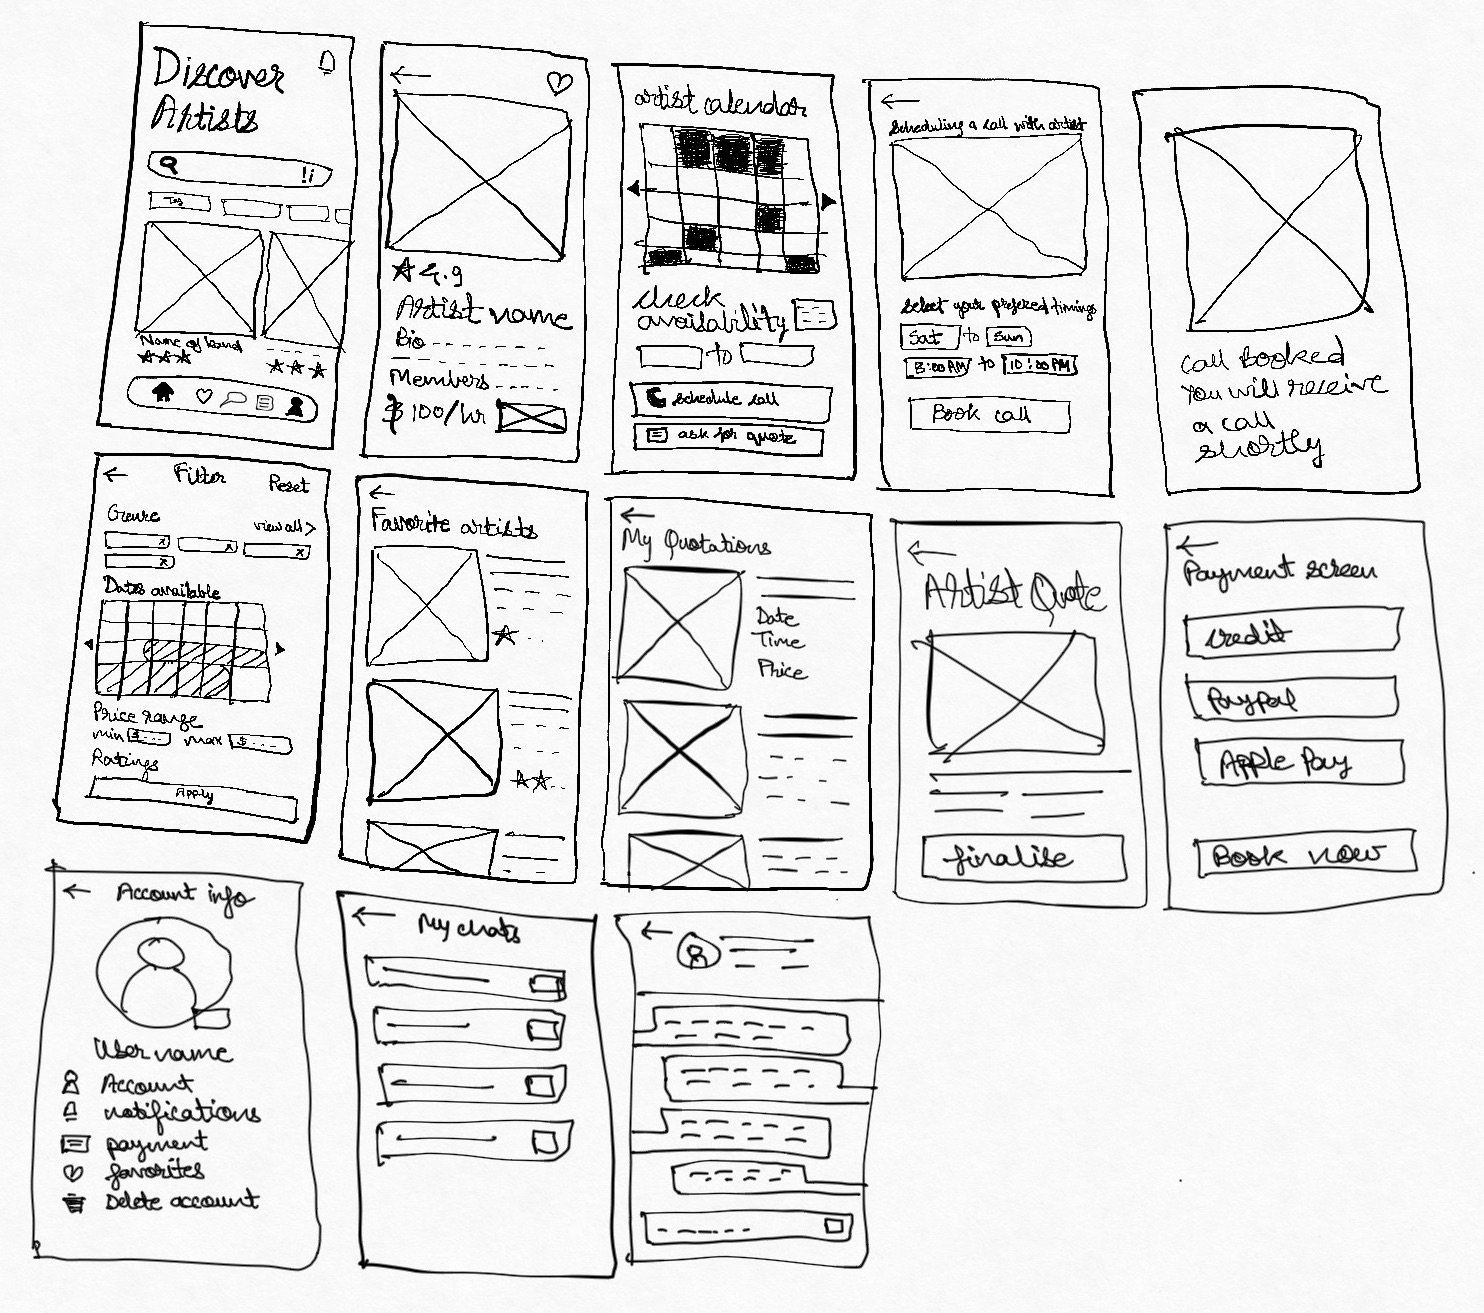 Discover
Artists
Tag
Name of band
4.9
Artist name
Bio
Members
$100/hr
artist calendar
check
availability
to
schedule call
ask for quote
Scheduling a call with artist
Select your prefered timings
Sat to Sun
8:00AM to 10:00PM
Book call
Call Booked
You will receive
a call
shortly
Filter Reset
Genre
view all >
x x x
x
Dates available
Price range
min $... max $...
Ratings
Apply
Favorite artists
My Quotations
Date
Time
Price
Artist Quote
finalise
Payment screen
credit
Paypal
Apple Pay
Book now
Account info
User name
Account
notifications
payment
favorites
Delete account
My chats